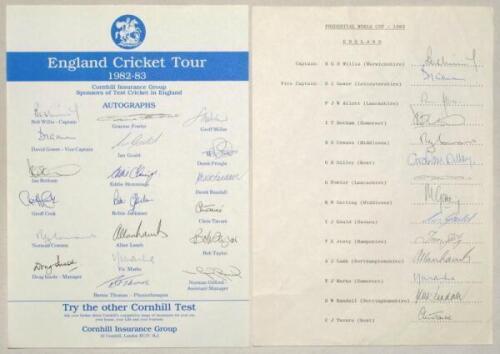 England Cricket Tour
1982-83
Cornhill Insurance Group
Sponsors of Test Cricket in England
AUTOGRAPHS
Bob Willis - Captain
Graeme Fowler
Geoff Miller
David Gower - Vice Captain
Ian Gould
Derek Pringle
Ian Botham
Eddie Hemmings
Derek Randall
Geoff Cook
Robin Jackman
Chris Tavare
Norman Cowans
Allan Lamb
Bob Taylor
Doug Insole - Manager
Vic Marks
Norman Gifford -
Assistant Manager
Bernard Thomas - Physiotherapist
Try the other Cornhill Test
Cornhill Insurance Group
32 Cornhill, London EC3V 3LJ
PRUDENTIAL WORLD CUP - 1983
ENGLAND
Captain: R G D Willis (Warwickshire)
Vice Captain: D I Gower (Leicestershire)
P J W Allott (Lancashire)
I T Botham (Somerset)
N G Cowans (Middlesex)
G R Dilley (Kent)
G Fowler (Lancashire)
M W Gatting (Middlesex)
I J Gould (Sussex)
T E Jesty (Hampshire)
A J Lamb (Northamptonshire)
V J Marks (Somerset)
D W Randall (Nottinghamshire)
C J Tavare (Kent)